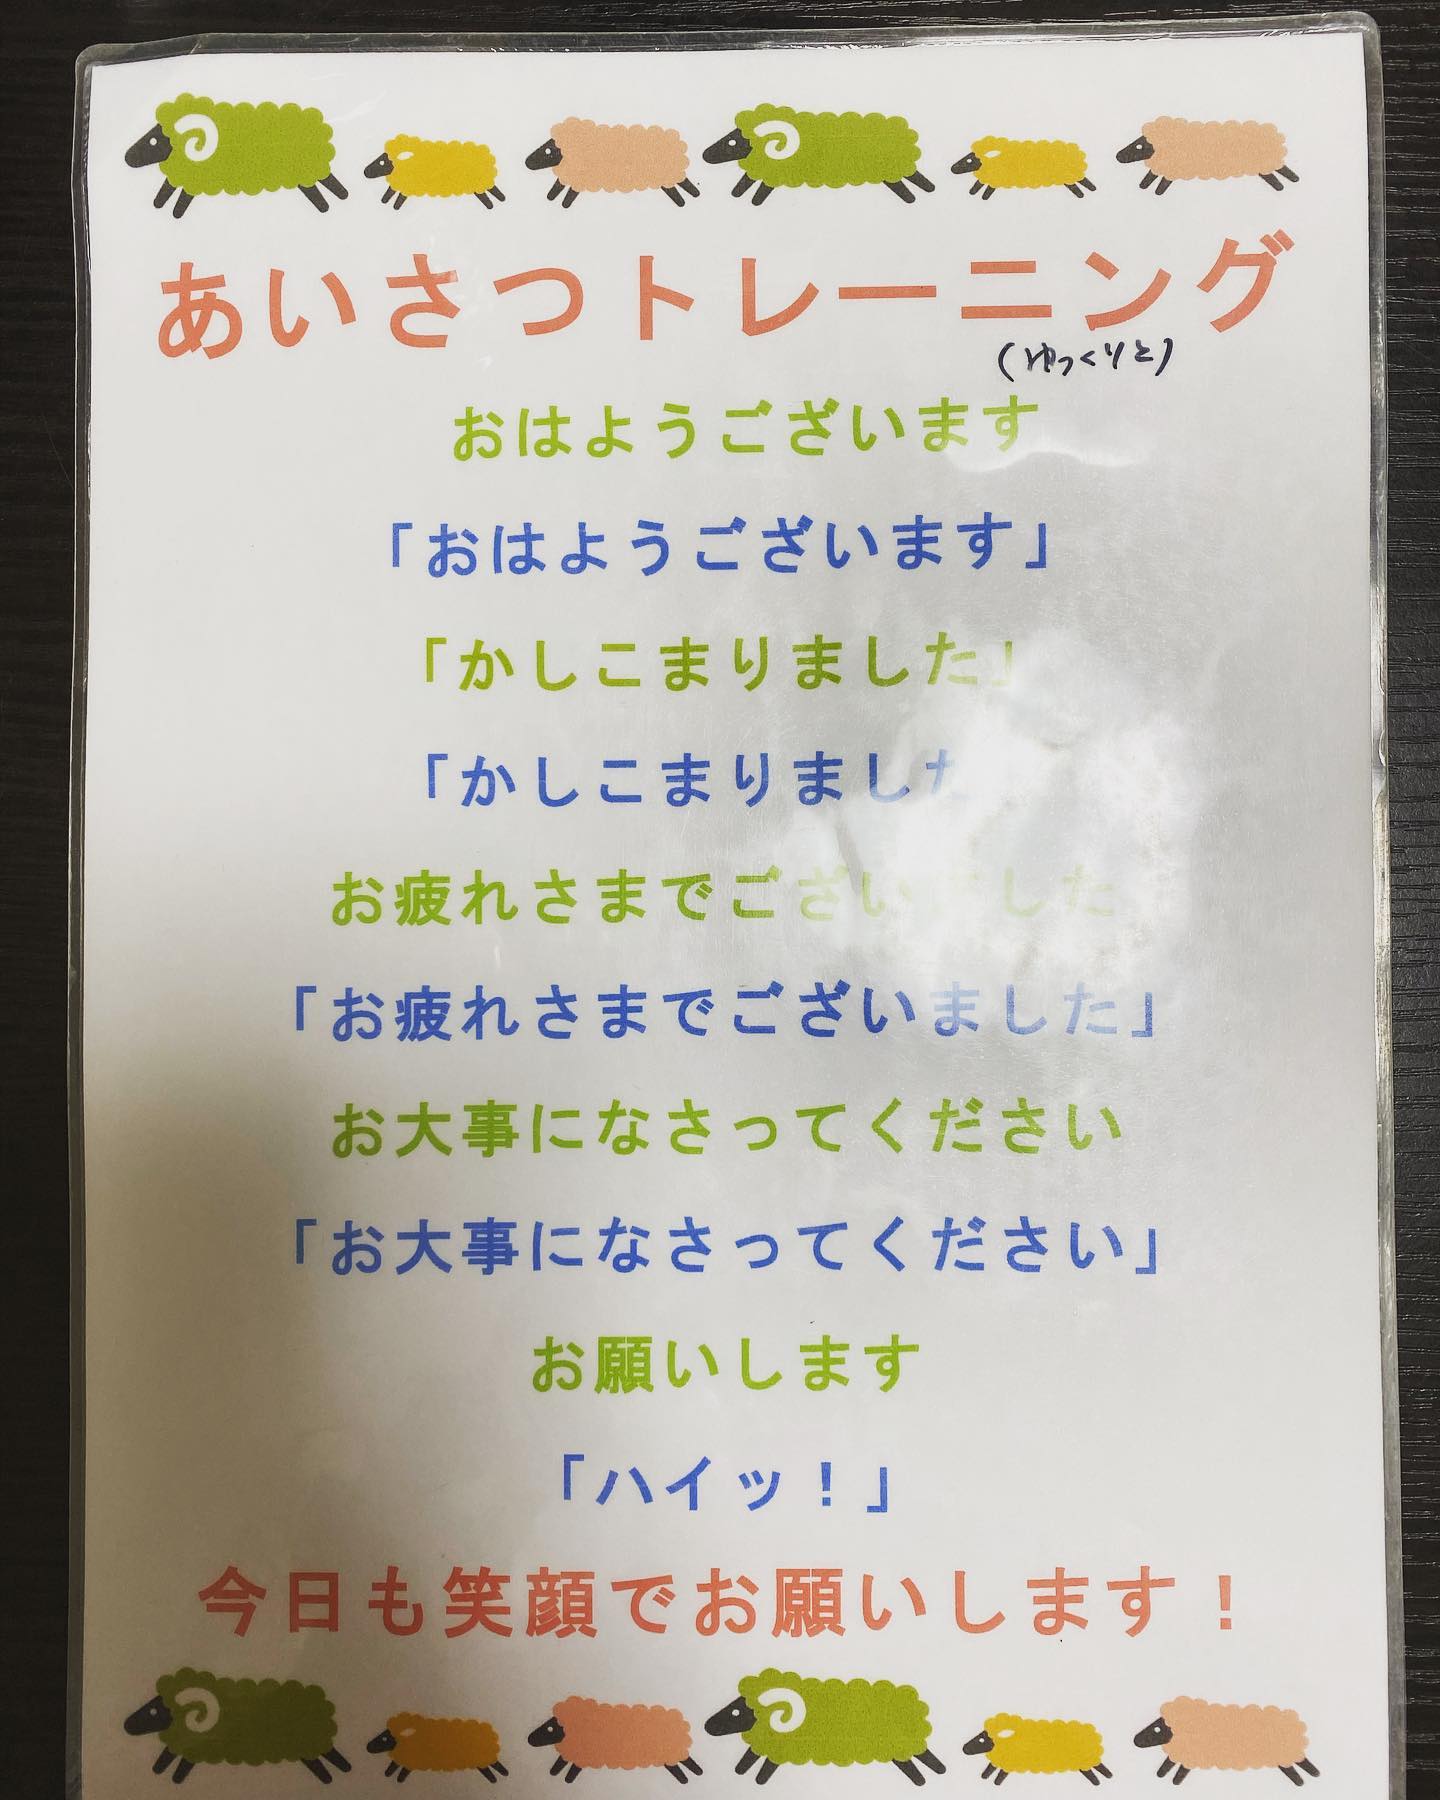 あいさつトレーニング
(ゆっくりと)
おはようございます
「おはようございます」
「かしこまりました」
「かしこまりました
お疲れさまでございました
「お疲れさまでございました」
お大事になさってください
「お大事になさってください」
お願いします
「ハイッ！」
今日も笑顔でお願いします！